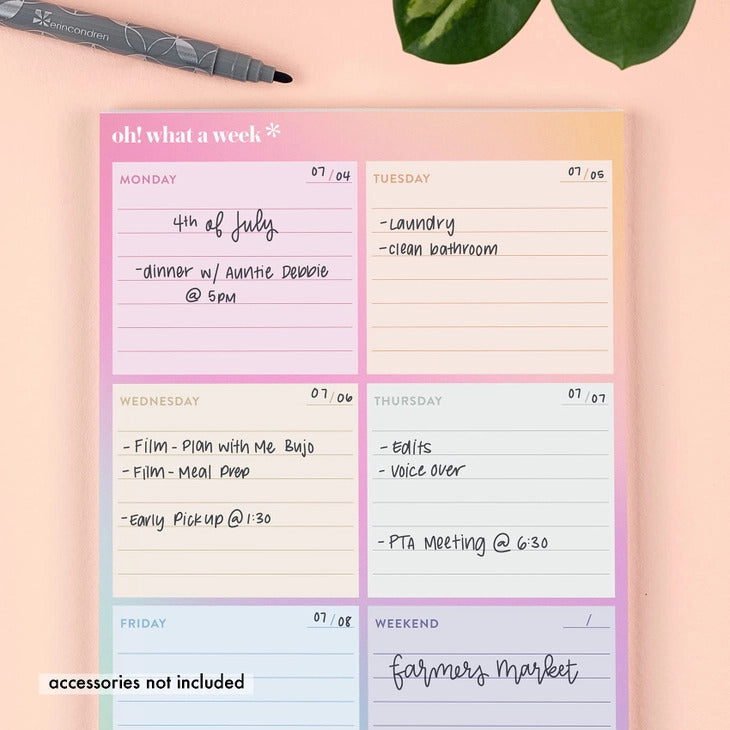 erincondren
oh! what a week*
MONDAY 07/04
4th of July
-dinner w/ Auntie Debbie
@ 5PM
TUESDAY 07/05
-Laundry
-clean bathroom
WEDNESDAY 07/06
-Film-Plan With Me Bujo
-Film-Meal Prep
-Early Pickup @ 1:30
THURSDAY 07/07
-Edits
-Voice Over
-PTA Meeting @ 6:30
FRIDAY 07/08
WEEKEND /
farmers market
accessories not included